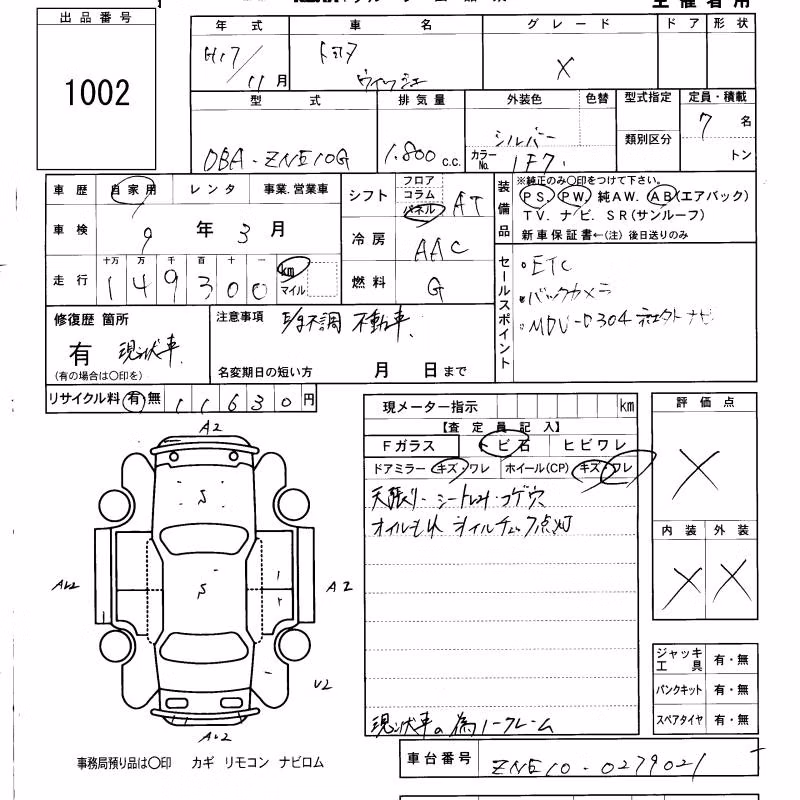 出品番号
1002
年式 車名 グレード ドア 形状
H17/11月 トヨタ ウィッシュ X
型式 排気量 外装色 色替 型式指定 定員・積載
DBA-ZNE10G 1.800 c.c. シルバー カラーNo. 1F7 類別区分 7名 トン
車歴 自家用 レンタ 事業.営業車
シフト フロア コラム パネル AT
装備品 ※純正のみ○印をつけて下さい。
PS. PW. 純AW. AB(エアバック)
TV. ナビ. SR(サンルーフ)
新車保証書←(注)後日送りのみ
車検 9年3月
冷房 AAC
走行 十万 万 千 百 十 一
149300 km マイル
燃料 G
セールスポイント
・ETC
・バックカメラ
・MDV-D304
修復歴 箇所
有 現状車.
(有の場合は○印を)
注意事項 E/g不調 不動車.
名変期日の短い方 月 日まで
リサイクル料 有 無 11630円
現メーター指示 km
【査定員記入】
Fガラス トビ石 ヒビワレ
ドアミラー キズ・ワレ ホイール(CP) キズ・ワレ
天張り・シートヨレ・コゲ穴
オイルモレ オイルチェック点灯
現状車の為ノークレーム
評価点
X
内装 外装
X X
ジャッキ工具 有・無
パンクキット 有・無
スペアタイヤ 有・無
A2
S
S
A2
U2
事務局預り品は○印 カギ リモコン ナビロム
車台番号 ZNE10-0279021